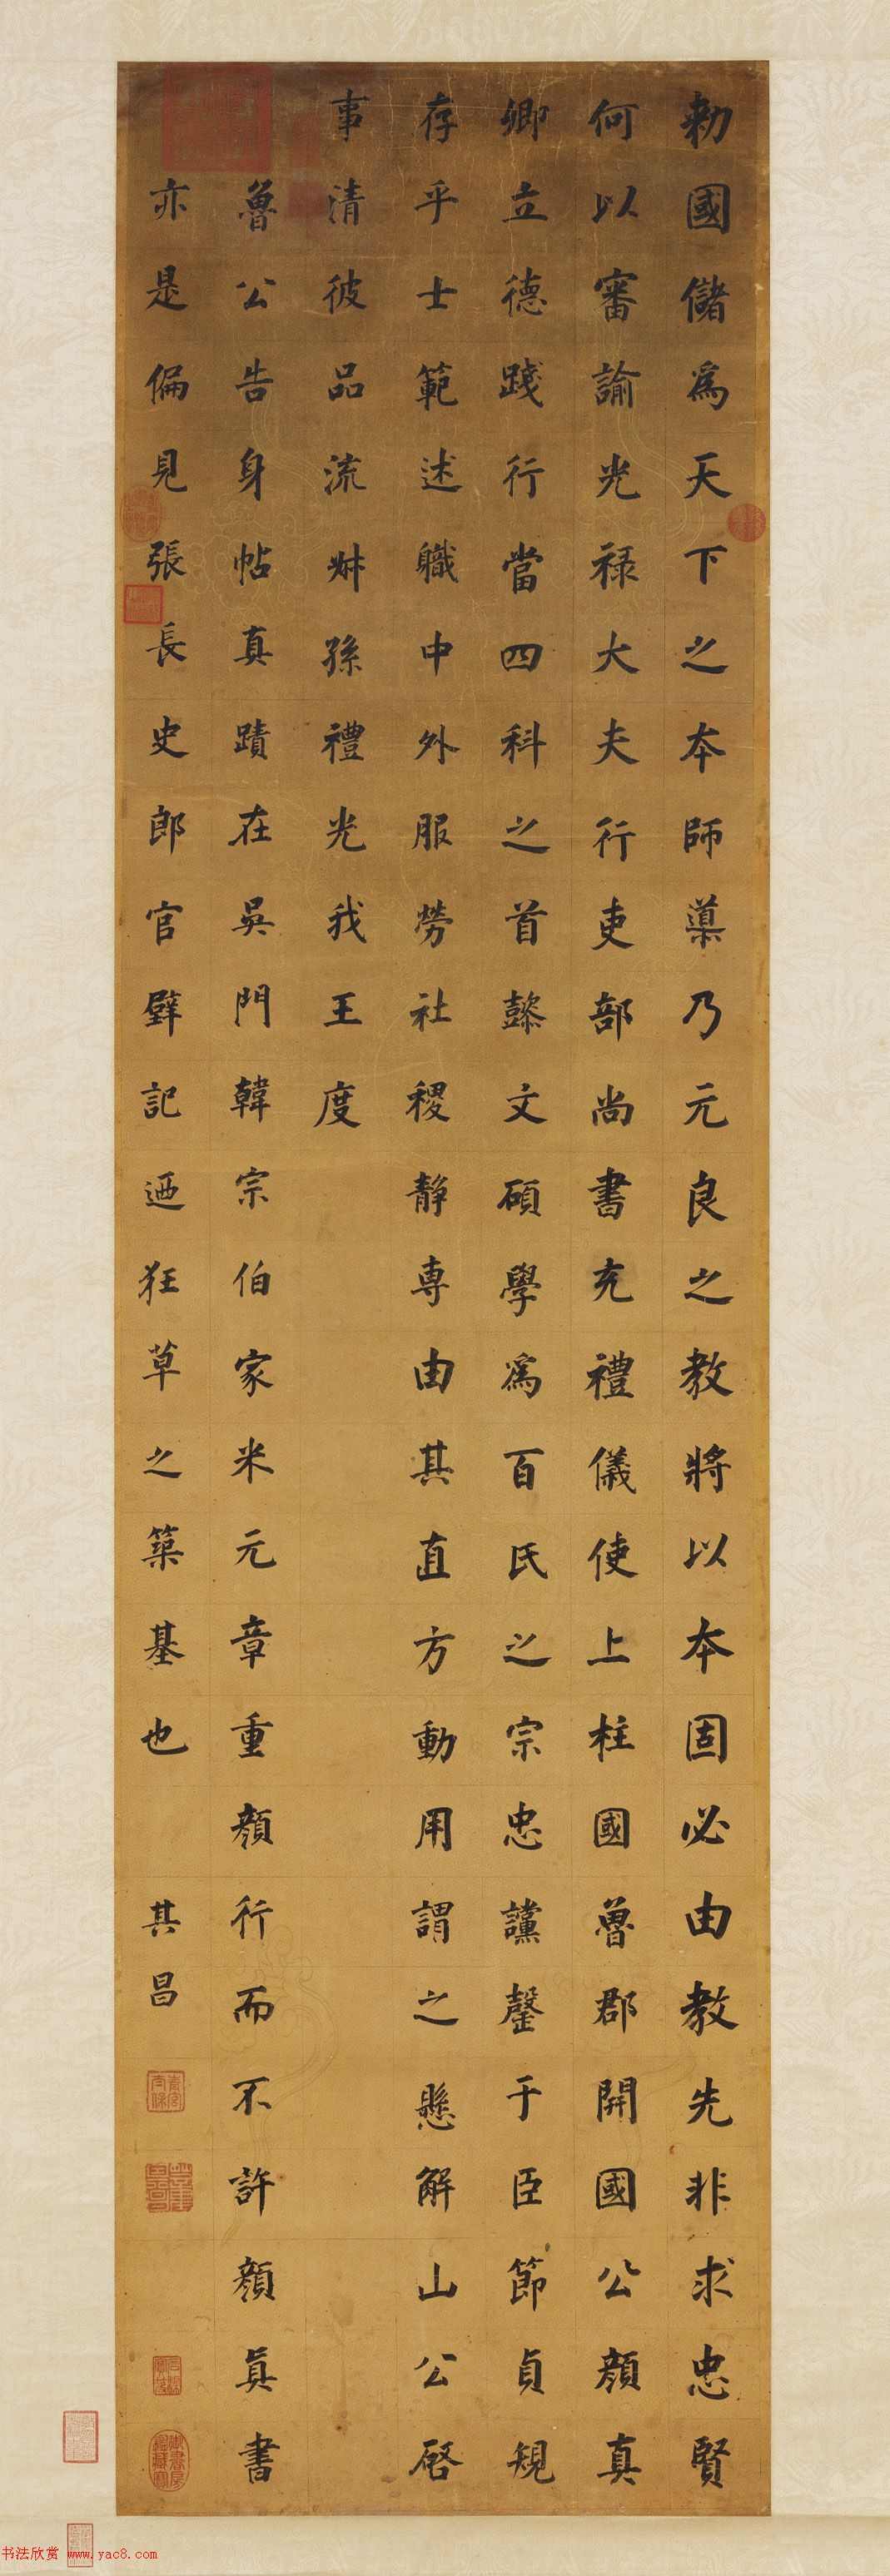 勅國儲爲天下之本師導乃元良之教將以本固必由教先非求忠賢
何以審諭光禄大夫行吏部尚書充禮儀使上柱國魯郡開國公顔真
卿立德踐行當四科之首懿文碩學爲百氏之宗忠讜罄于臣節貞規
存乎士範述職中外服勞社稷静専由其直方動用謂之懸解山公啓
事清彼品流叔孫禮光我王度
魯公告身帖真蹟在吳門韓宗伯家米元章重顔行而不許顔真書
亦是偏見張長史郎官壁記迺狂草之築基也 其昌
书法欣赏 www.yac8.com